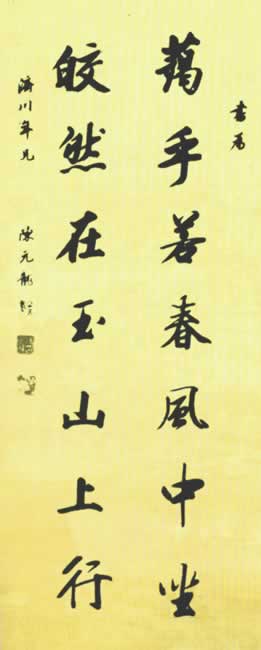 書為
藹乎若春風中坐
皎然在玉山上行
濟川年兄
陳元龍